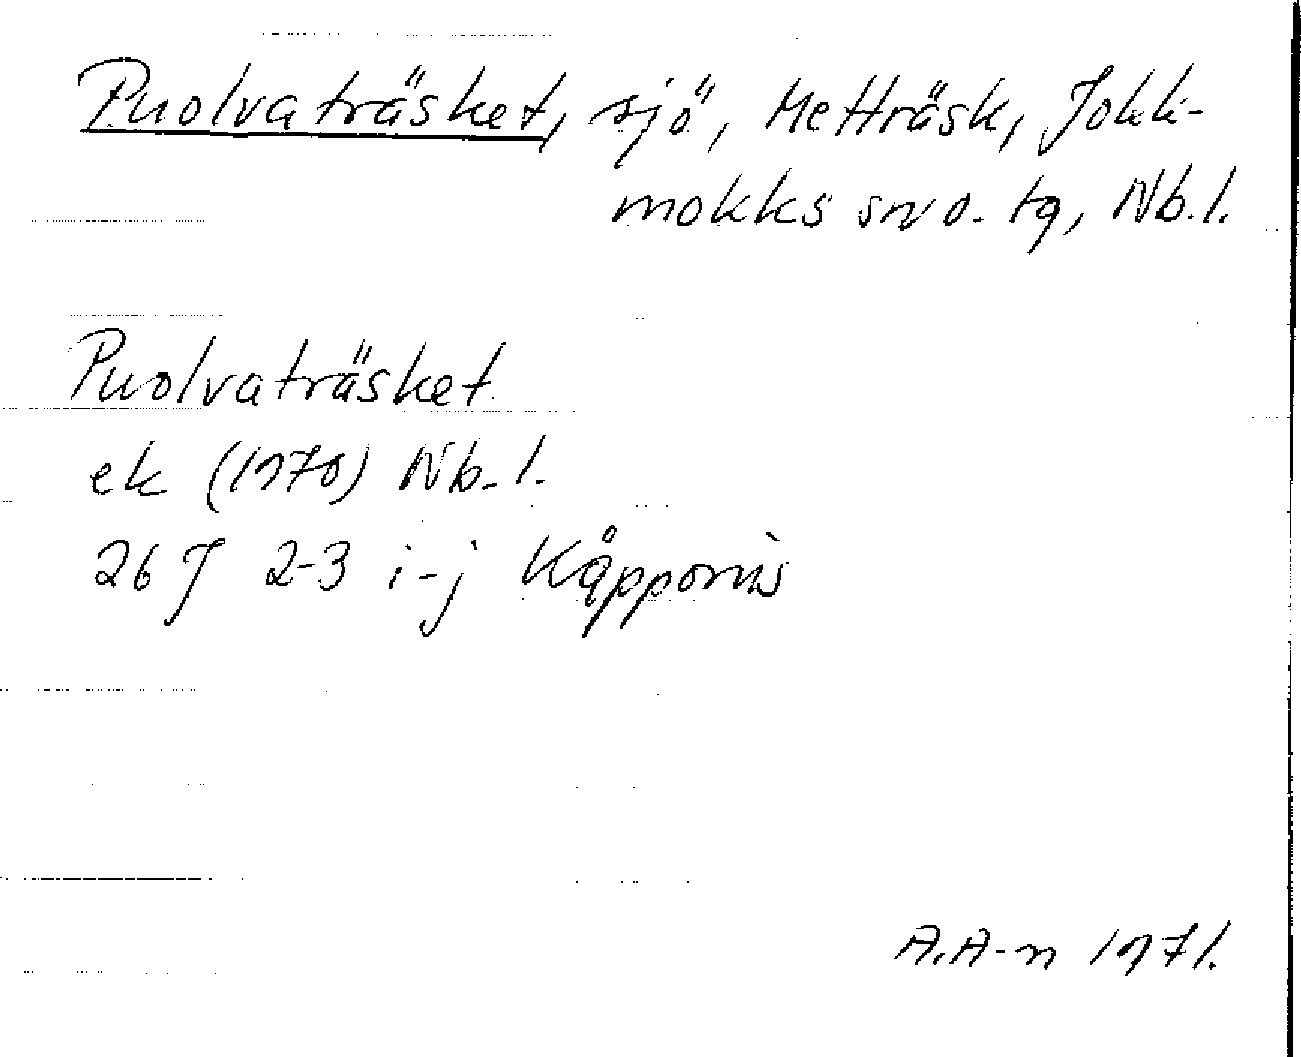 Puolvaträsket, sjö, Metträsk, Jokk-
mokks sn o. tg, Nb.l.
Puolvaträsket
ek (1970) Nb.l.
26 J 2-3 i-j Kåpponis
A.A-n 1971.